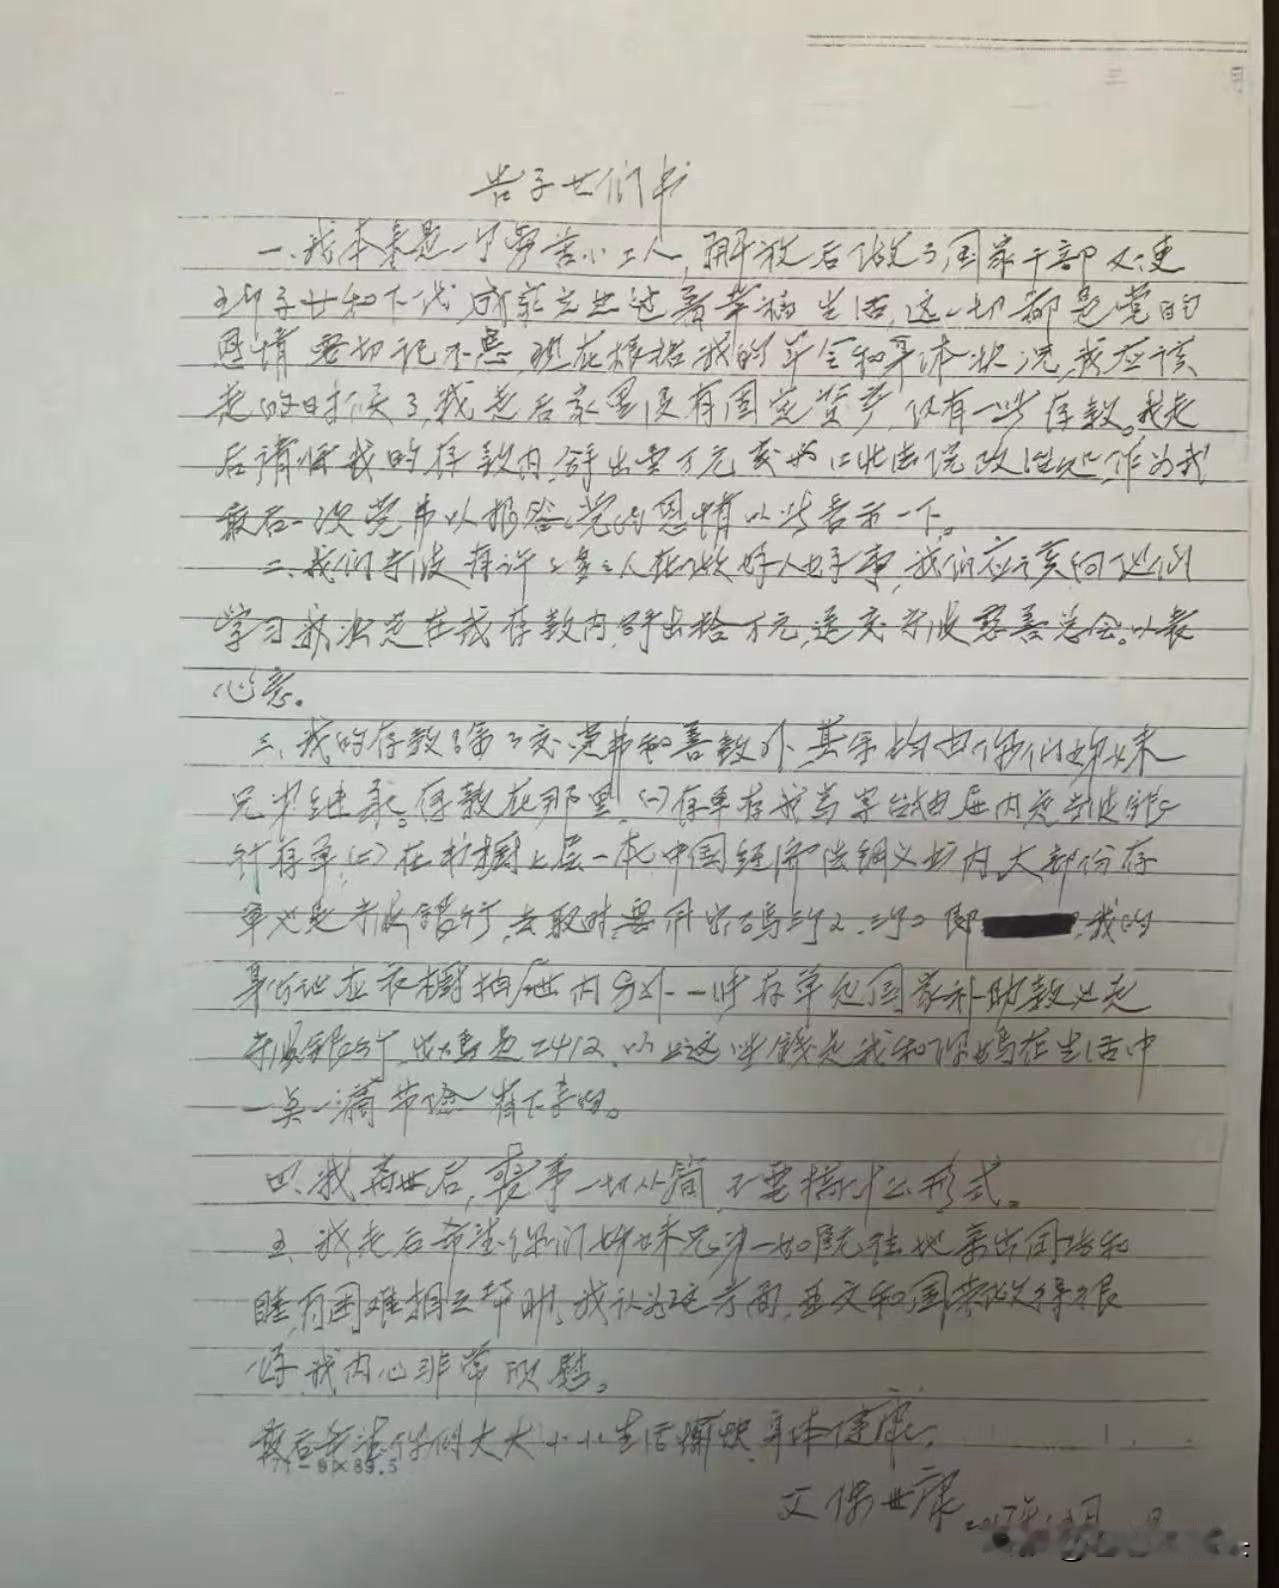 告子女们书
一、我本来是一个劳苦小工人,解放后做了国家干部又使
子女和下代成家立业过着幸福生活,这一切都是党的
恩情要切记不忘,现在根据我的年令和身体状况,我应该
走的时候了,我走后家里没有固定资产,仅有一些存款。我走
后请将我的存款内,拿出壹万元交给江北法院政治处,作为我
最后一次党费以报答党的恩情以此表示一下。
二、我们宁波有许许多多人在做好人好事,我们应该向他们
学习,我决定在我存款内,拿出拾万元,送交宁波慈善总会。以表
心意。
三、我的存款除了交党费和善款外,其余均由你们姊妹
兄弟继承。存款在那里,(一)存单在我写字台抽屉内是宁波银
行存单,(二)在书橱上层一本中国经济法纲义书内,大部份存
单也是宁波银行,去取时要用密码 即 我的
身份证在衣橱抽屉内另外一些存单包国家补助款也是
宁波银行,密码是2412,以上这些钱是我和你妈在生活中
一点一滴节俭省下来的。
四、我离世后,丧事一切从简,不要搞什么形式。
五、我走后希望你们姊妹兄弟一如既往地亲密团结和
睦,有困难相互帮助,我认为这方面,亚文和国荣做得很
好,我内心非常欣慰。
最后希望你们大大小小生活愉快,身体健康。
71-8×89.5
父 傅世康 2017年 月 日
三 月